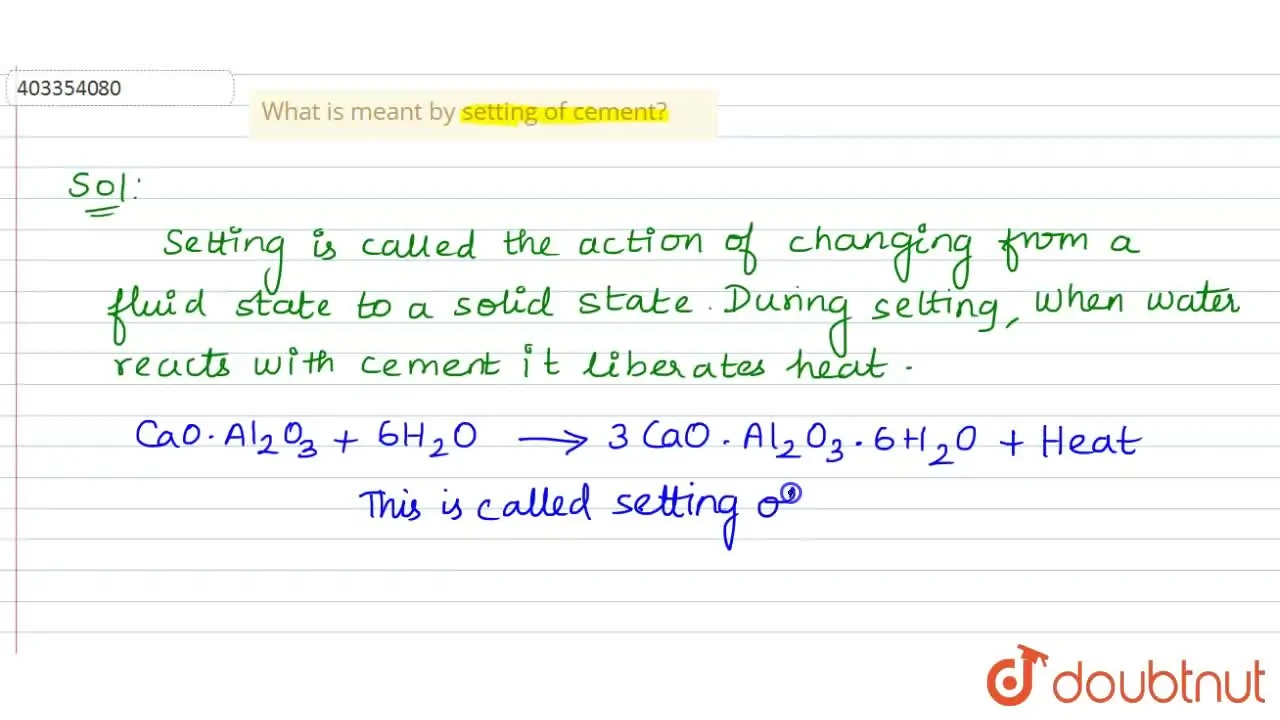 403354080
What is meant by setting of cement?
Sol:
Setting is called the action of changing from a
fluid state to a solid state. During setting, when water
reacts with cement it liberates heat.
CaO·Al₂O₃ + 6H₂O → 3CaO·Al₂O₃·6H₂O + Heat
This is called setting o
doubtnut